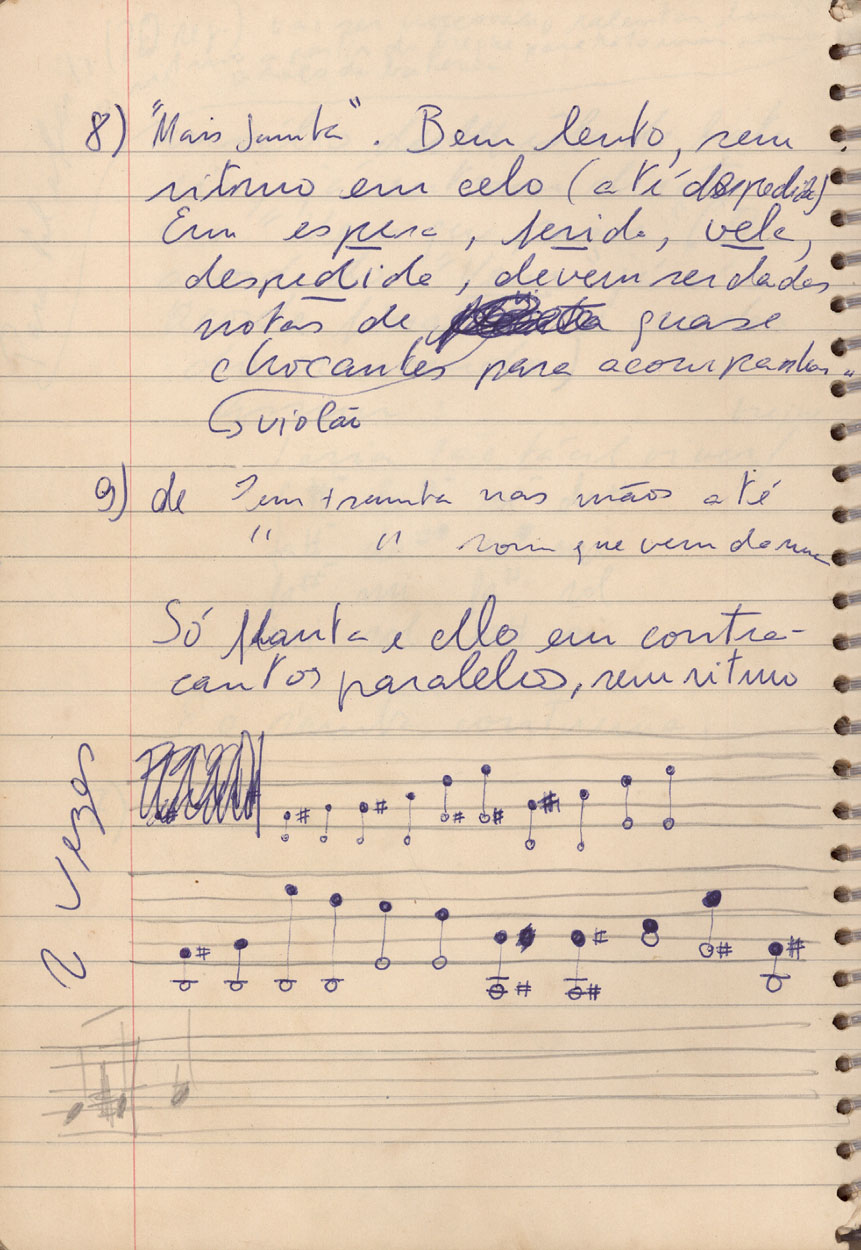 8) "Mais Janta". Bem lento, sem
ritmo em celo (até despedida)
Em espera, ferida, vela,
despedida, devem ser dadas
notas de quase
chocantes para acompanhar
violão
9) de Tem + nas mãos até
" " som que vem da
Só flauta e cello em contra-
cantos paralelos, sem ritmo
2 vezes